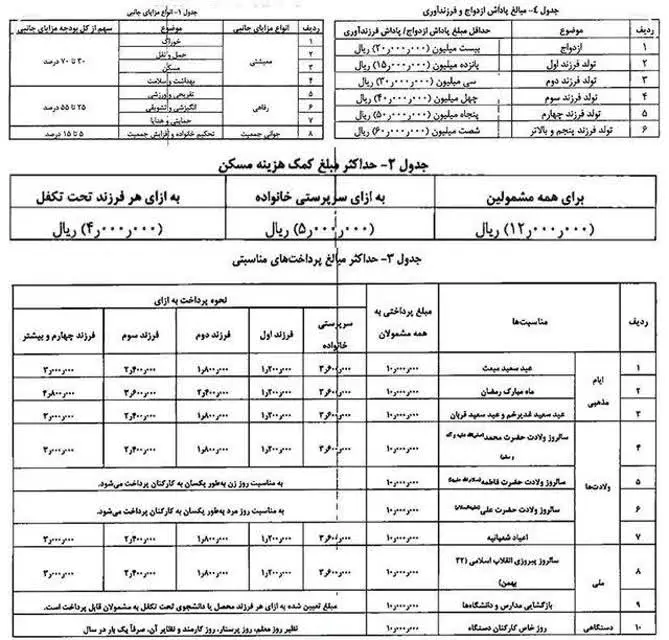 جدول ۴- مبالغ پاداش ازدواج و فرزندآوری
ردیف موضوع حداقل مبلغ پاداش ازدواج/ پاداش فرزندآوری
۱ ازدواج بیست میلیون (۲۰٫۰۰۰٫۰۰۰) ریال
۲ تولد فرزند اول پانزده میلیون (۱۵٫۰۰۰٫۰۰۰) ریال
۳ تولد فرزند دوم سی میلیون (۳۰٫۰۰۰٫۰۰۰) ریال
۴ تولد فرزند سوم چهل میلیون (۴۰٫۰۰۰٫۰۰۰) ریال
۵ تولد فرزند چهارم پنجاه میلیون (۵۰٫۰۰۰٫۰۰۰) ریال
۶ تولد فرزند پنجم و بالاتر شصت میلیون (۶۰٫۰۰۰٫۰۰۰) ریال
جدول ۱- انواع مزایای جانبی
ردیف انواع مزایای جانبی موضوع سهم از کل بودجه مزایای جانبی
۱ معیشتی خوراک ۳۰ تا ۷۰ درصد
۲ حمل و نقل
۳ مسکن
۴ بهداشت و سلامت
۵ رفاهی تفریحی و ورزشی ۲۵ تا ۵۵ درصد
۶ انگیزشی و تشویقی
۷ حمایتی و هدایا
۸ جوانی جمعیت تحکیم خانواده و افزایش جمعیت ۵ تا ۱۵ درصد
جدول ۲- حداکثر مبلغ کمک هزینه مسکن
برای همه مشمولین به ازای سرپرستی خانواده به ازای هر فرزند تحت تکفل
(۱۲٫۰۰۰٫۰۰۰) ریال (۵٫۰۰۰٫۰۰۰) ریال (۴٫۰۰۰٫۰۰۰) ریال
جدول ۳- حداکثر مبالغ پرداخت‌های مناسبتی
ردیف مناسبت‌ها مبلغ پرداختی به همه مشمولان نحوه پرداخت به ازای
سرپرستی خانواده فرزند اول فرزند دوم فرزند سوم فرزند چهارم و بیشتر
۱ ایام مذهبی عید سعید مبعث ۱۰٫۰۰۰٫۰۰۰ ۳٫۶۰۰٫۰۰۰ ۱٫۲۰۰٫۰۰۰ ۱٫۸۰۰٫۰۰۰ ۲٫۴۰۰٫۰۰۰ ۳٫۰۰۰٫۰۰۰
۲ ماه مبارک رمضان ۱۰٫۰۰۰٫۰۰۰ ۳٫۶۰۰٫۰۰۰ ۱٫۲۰۰٫۰۰۰ ۲٫۴۰۰٫۰۰۰ ۳٫۶۰۰٫۰۰۰ ۴٫۸۰۰٫۰۰۰
۳ عید سعید غدیرخم و عید سعید قربان ۱۰٫۰۰۰٫۰۰۰ ۳٫۶۰۰٫۰۰۰ ۱٫۲۰۰٫۰۰۰ ۱٫۸۰۰٫۰۰۰ ۲٫۴۰۰٫۰۰۰ ۳٫۰۰۰٫۰۰۰
۴ ولادت‌ها سالروز ولادت حضرت محمد ۱۰٫۰۰۰٫۰۰۰ ۳٫۶۰۰٫۰۰۰ ۱٫۲۰۰٫۰۰۰ ۱٫۸۰۰٫۰۰۰ ۲٫۴۰۰٫۰۰۰ ۳٫۰۰۰٫۰۰۰
۵ سالروز ولادت حضرت فاطمه ۱۰٫۰۰۰٫۰۰۰ به مناسبت روز زن به‌طور یکسان به کارکنان پرداخت می‌شود.
۶ سالروز ولادت حضرت علی ۱۰٫۰۰۰٫۰۰۰ به مناسبت روز مرد به‌طور یکسان به کارکنان پرداخت می‌شود.
۷ اعیاد شعبانیه ۱۰٫۰۰۰٫۰۰۰ ۳٫۶۰۰٫۰۰۰ ۱٫۲۰۰٫۰۰۰ ۱٫۸۰۰٫۰۰۰ ۲٫۴۰۰٫۰۰۰ ۳٫۰۰۰٫۰۰۰
۸ ملی سالروز پیروزی انقلاب اسلامی (۲۲ بهمن) ۱۰٫۰۰۰٫۰۰۰ ۳٫۶۰۰٫۰۰۰ ۱٫۲۰۰٫۰۰۰ ۱٫۸۰۰٫۰۰۰ ۲٫۴۰۰٫۰۰۰ ۳٫۰۰۰٫۰۰۰
۹ بازگشایی مدارس و دانشگاه‌ها ۱۰٫۰۰۰٫۰۰۰ مبلغ تعیین شده به ازای هر فرزند محصل یا دانشجوی تحت تکفل به مشمولان قابل پرداخت است.
۱۰ دستگاهی روز خاص کارکنان دستگاه ۱۰٫۰۰۰٫۰۰۰ نظیر روز معلم، روز پرستار، روز کارمند و نظایر آن، صرفاً یک بار در سال